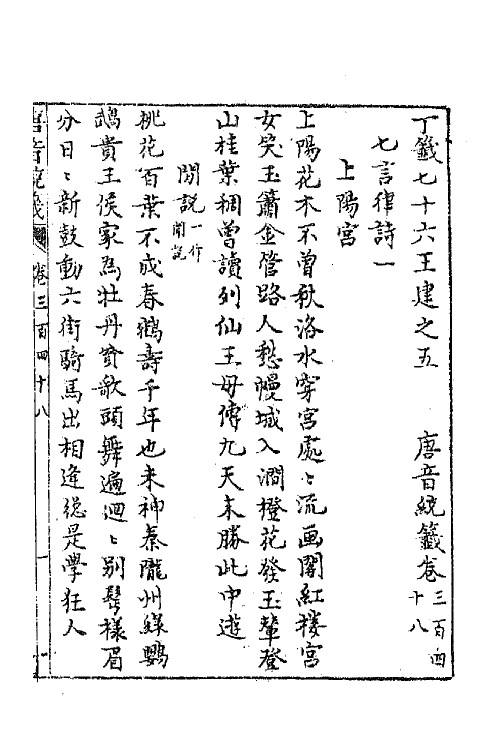 丁籤七十六王建之五　唐音統籤卷三百四十八
七言律詩一
上陽宮
上陽花木不曾秋洛水穿宮處〻流画閣紅樓宮
女笑玉簫金管路人愁幔城入澗橙花發玉輦登
山桂葉稠曾讀列仙王母傳九天未勝此中遊
閒說一作閑說
桃花百葉不成春鶴壽千年也未神秦隴州緣鸚
鵡貴王侯家為牡丹貧歌頭舞遍迴〻別鬂樣眉
分日〻新鼓動六街騎馬出相逢総是學狂人
唐音統籤　卷三百四十八　一